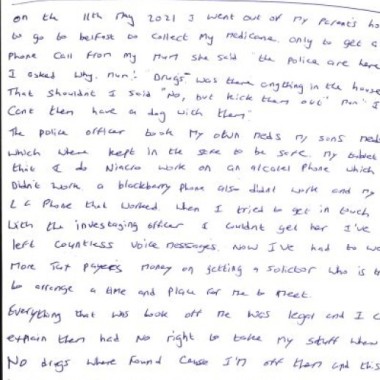 on the 11th May 2021 I went out of my parent's ho
to go to belfast to collect my medicane only to get a
phone call from my mum she said "the police are here
I asked why. mum: "Drugs" was there anything in the house
That shouldnt I said "No, but kick them out" mum "I
cant them have a day with them"
The police officer took my own meds my sons meds
which where kept in the safe to be safe. my tablet
that I do Niacro work on an alcatel phone which
Didn't work a blackberry phone also didnt work and my
L G Phone that worked. when I tried to get in touch
with the investaging officer I couldnt get her I've
left countless voice messages. Now I've had to we
more Tax payers money on getting a solicitor who is t
to arrange a time and place for me to meet.
Everything that was took off me was legal and I c
explain them had no right to take my stuff when
No drugs where found cause I'm off them and this